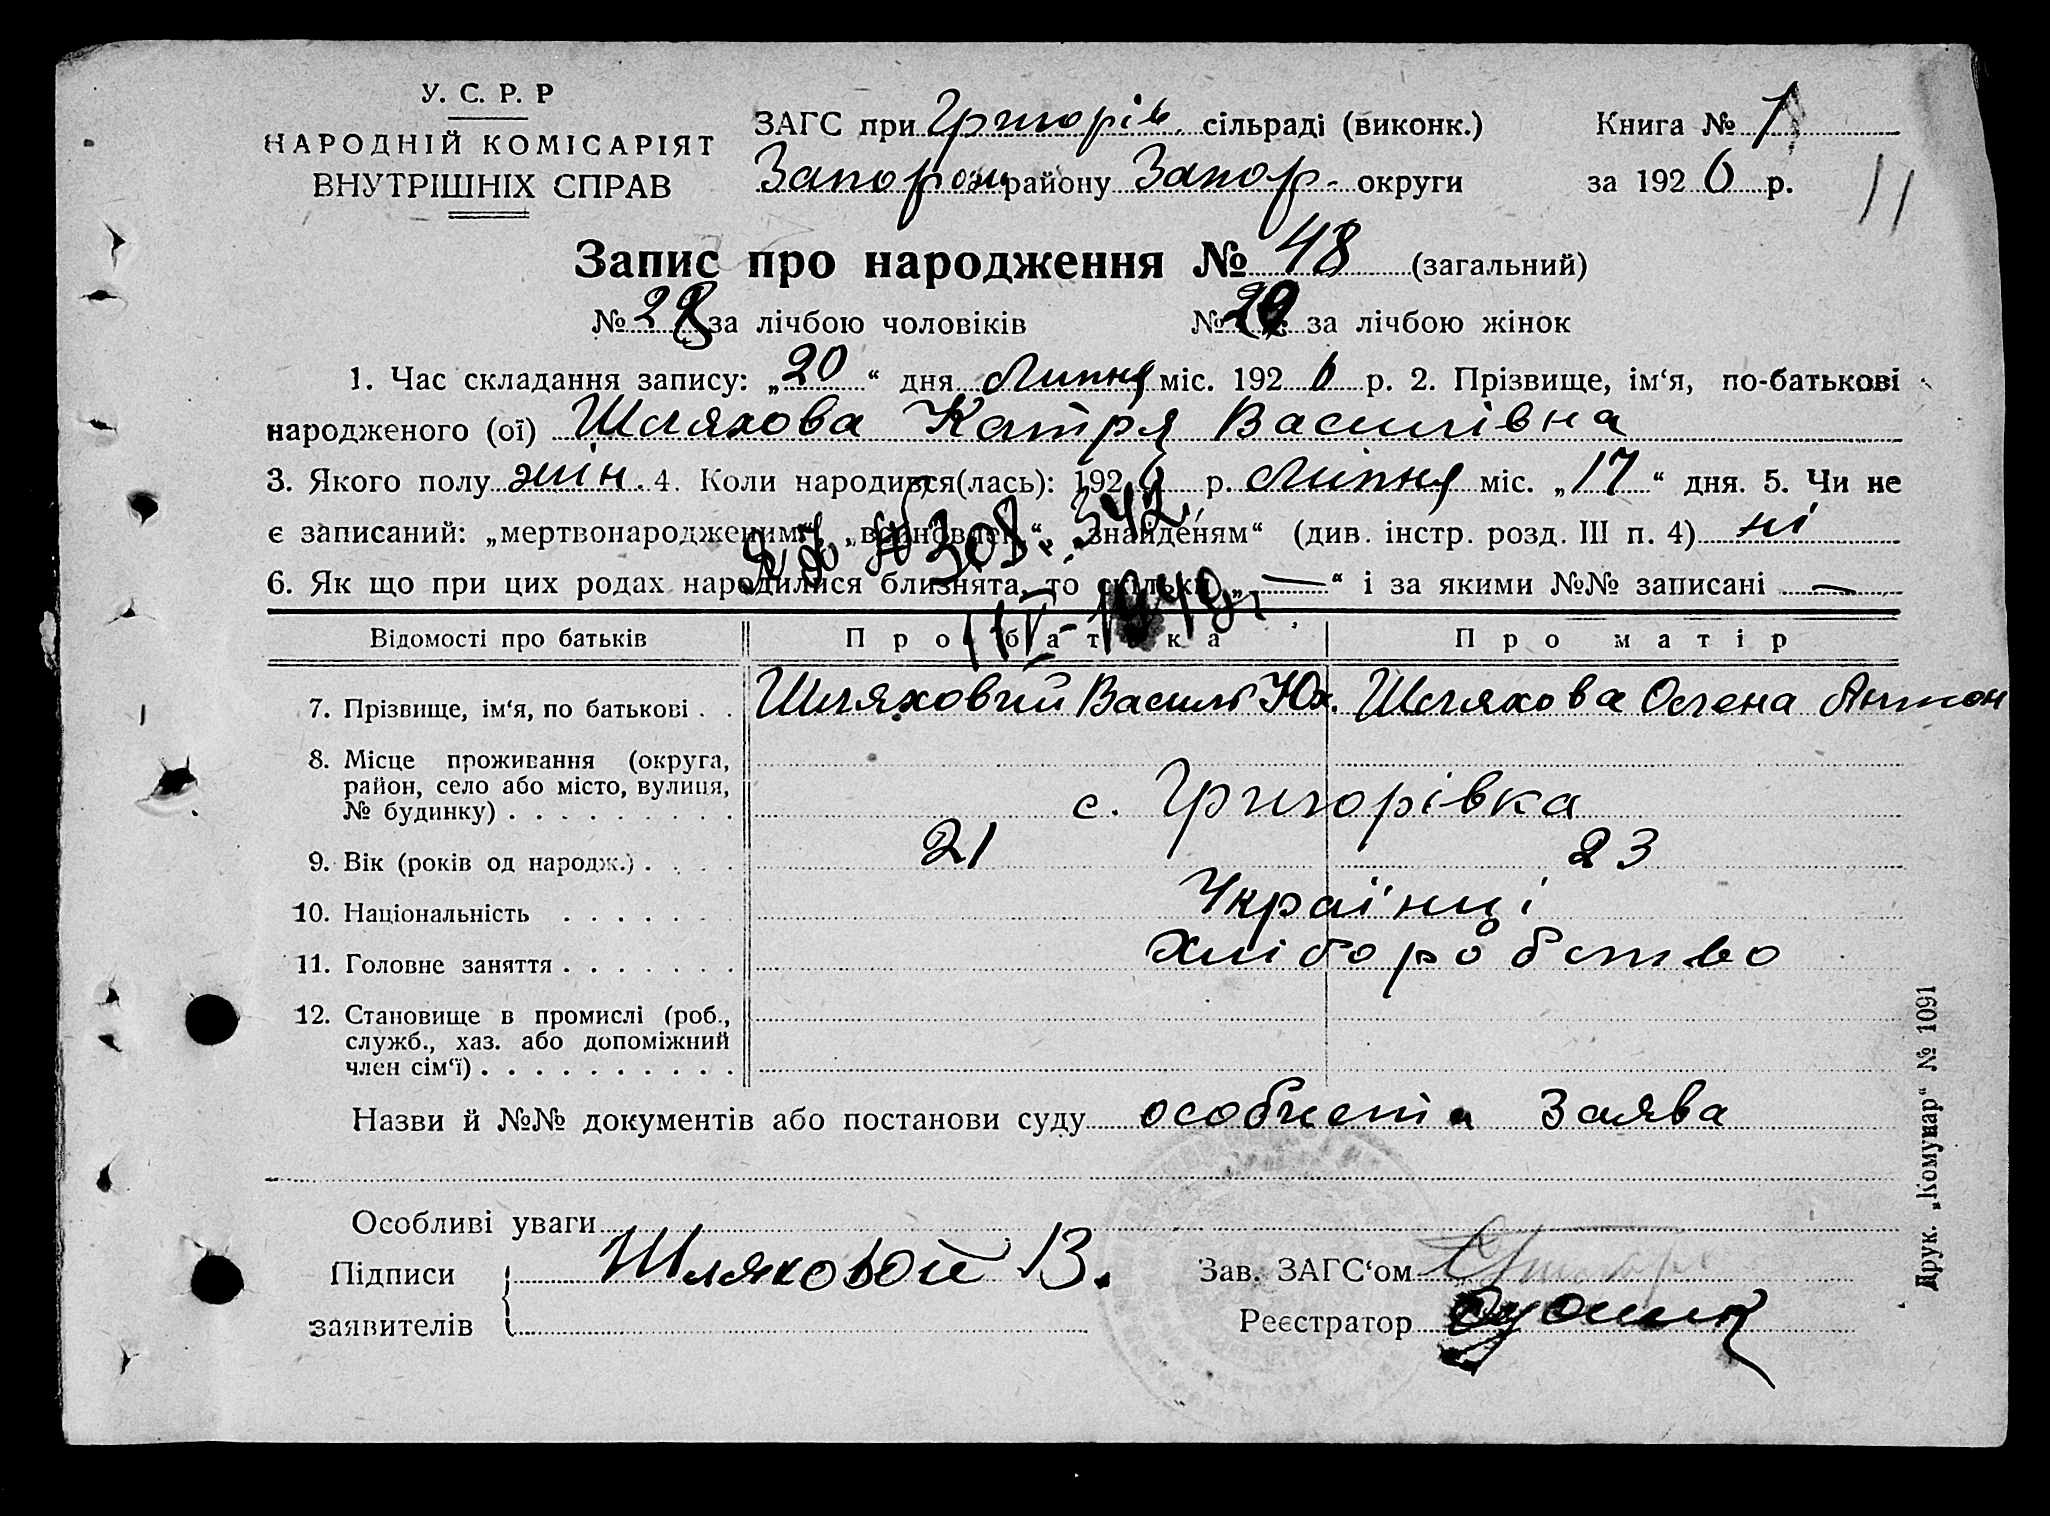 У. С. Р. Р
НАРОДНІЙ КОМІСАРІЯТ
ВНУТРІШНІХ СПРАВ
ЗАГС при Григорів. сільраді (виконк.)
Запорож району Запор. округи
Книга № 1
за 1926 р.
11
Запис про народження № 48 (загальний)
№ 28 за лічбою чоловіків № 20 за лічбою жінок
1. Час складання запису: „20“ дня Липня міс. 1926 р. 2. Прізвище, ім‘я, по-батькові
народженого (ої) Шляхова Катря Василівна
3. Якого полу жін. 4. Коли народився(лась): 1926 р. Липня міс. „17“ дня. 5. Чи не
є записаний: „мертвонародженим“, „знайденям“ (див. інстр. розд. III п. 4) ні
№308. 342.
6. Як що при цих родах народилися близнята, то скільки „—“ і за якими №№ записані —
Відомості про батьків Про батька Про матір
7. Прізвище, ім‘я, по батькові . . Шляховий Василь Юх. Шляхова Олена Антон
8. Місце проживання (округа,
район, село або місто, вулиця,
№ будинку) . . . . . . . . . . с. Григорівка
9. Вік (років од народж.) . . . . 21 23
10. Національність . . . . . . Українці
11. Головне заняття . . . . . . . хліборобство
12. Становище в промислі (роб.,
служб., хаз. або допоміжний
член сім‘ї) . . . . . . . . . . .
Назви й №№ документів або постанови суду особиста Заява
Особливі уваги
Підписи
заявителів
Шляховой В.
Зав. ЗАГС‘ом
Реєстратор
Друк. „Комунар“ № 1091